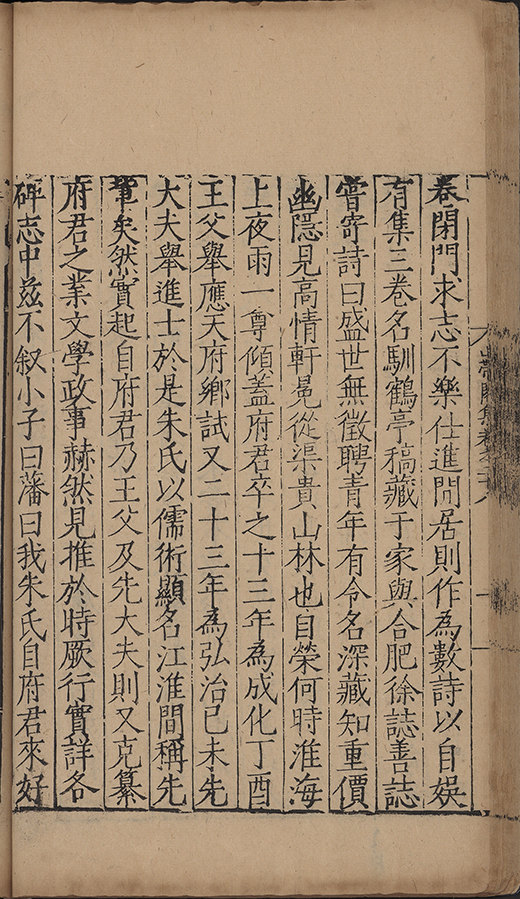 春閉門求志不樂仕進間居則作為數詩以自娛
有集三卷名馴鶴亭稿藏于家與合肥徐誌善誌
嘗寄詩曰盛世無徵聘青年有令名深藏知重價
幽隱見高情軒冕從渠貴山林也自榮何時淮海
上夜雨一尊傾蓋府君卒之十三年為成化丁酉
王父舉應天府鄉試又二十三年為弘治己未先
大夫舉進士於是朱氏以儒術顯名江淮間稱先
軰矣然實起自府君乃王父及先大夫則又克纂
府君之業文學政事赫然見推於時厥行實詳各
碑志中兹不叙小子曰藩曰我朱氏自府君來好